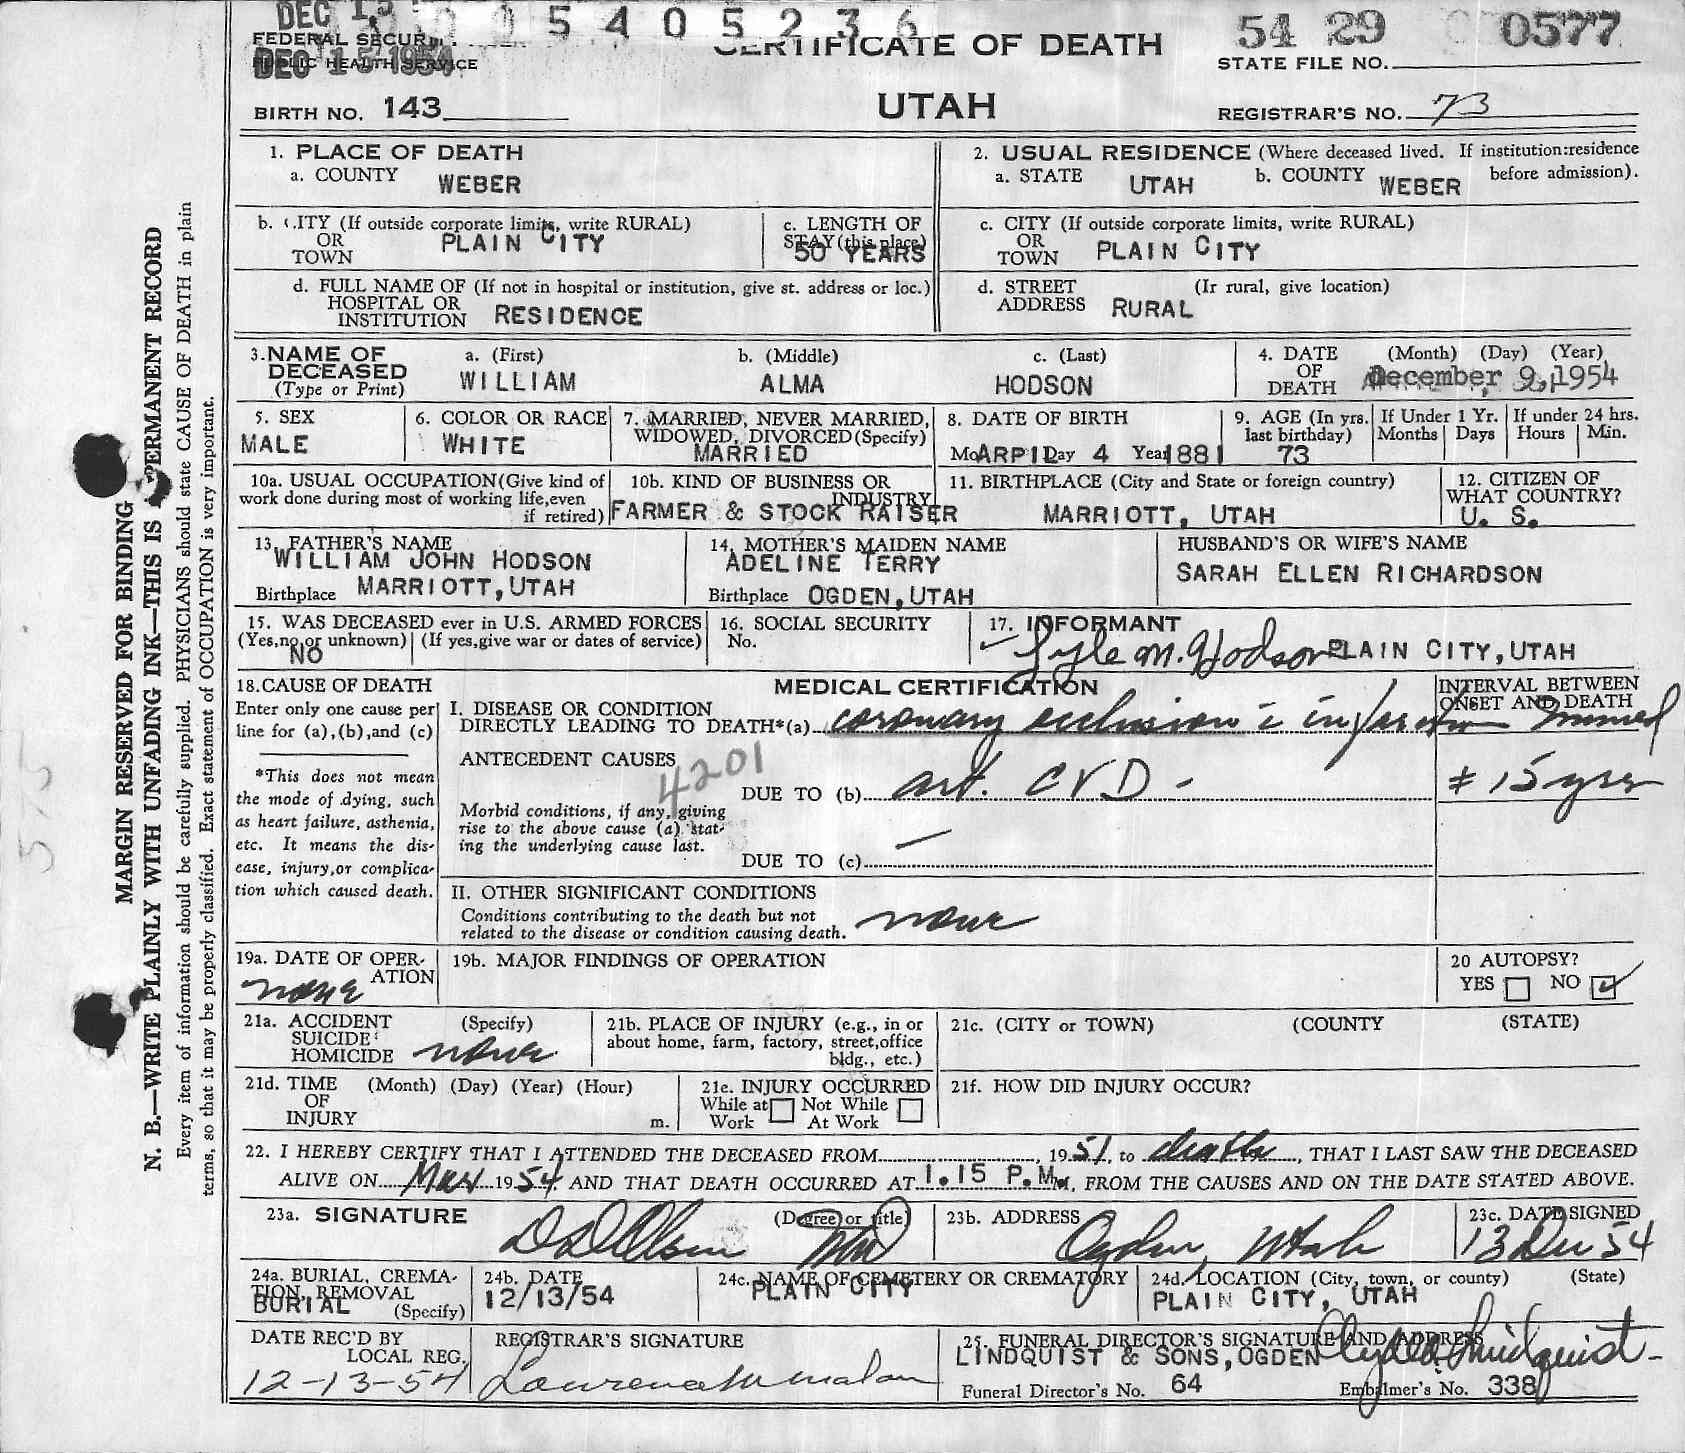 DEC 15
5 4 0 5 2 3 6
54 29 0577
FEDERAL SECURI
CERTIFICATE OF DEATH
PUBLIC HEALTH SERVICE
DEC 15 1954
STATE FILE NO.
BIRTH NO. 143
UTAH
REGISTRAR'S NO. 73
1. PLACE OF DEATH
a. COUNTY WEBER
2. USUAL RESIDENCE (Where deceased lived. If institution:residence
a. STATE UTAH b. COUNTY WEBER before admission).
b. CITY (If outside corporate limits, write RURAL)
OR
TOWN PLAIN CITY
c. LENGTH OF
STAY (this place)
50 YEARS
c. CITY (If outside corporate limits, write RURAL)
OR
TOWN PLAIN CITY
d. FULL NAME OF (If not in hospital or institution, give st. address or loc.)
HOSPITAL OR
INSTITUTION RESIDENCE
d. STREET (Ir rural, give location)
ADDRESS RURAL
3. NAME OF DECEASED
(Type or Print)
a. (First) b. (Middle) c. (Last)
WILLIAM ALMA HODSON
4. DATE OF DEATH
(Month) (Day) (Year)
December 9, 1954
5. SEX
MALE
6. COLOR OR RACE
WHITE
7. MARRIED, NEVER MARRIED,
WIDOWED, DIVORCED (Specify)
MARRIED
8. DATE OF BIRTH
Mo ARPIL Day 4 Year 1881
9. AGE (In yrs.
last birthday)
73
If Under 1 Yr.
Months Days
If under 24 hrs.
Hours Min.
10a. USUAL OCCUPATION (Give kind of
work done during most of working life,even
if retired)
10b. KIND OF BUSINESS OR
INDUSTRY
FARMER & STOCK RAISER
11. BIRTHPLACE (City and State or foreign country)
MARRIOTT, UTAH
12. CITIZEN OF
WHAT COUNTRY?
U. S.
13. FATHER'S NAME
WILLIAM JOHN HODSON
Birthplace MARRIOTT, UTAH
14. MOTHER'S MAIDEN NAME
ADELINE TERRY
Birthplace OGDEN, UTAH
HUSBAND'S OR WIFE'S NAME
SARAH ELLEN RICHARDSON
15. WAS DECEASED ever in U.S. ARMED FORCES
(Yes,no,or unknown) (If yes,give war or dates of service)
NO
16. SOCIAL SECURITY
No.
17. INFORMANT
Lyle M. Hodson PLAIN CITY, UTAH
18. CAUSE OF DEATH
Enter only one cause per
line for (a),(b),and (c)
*This does not mean
the mode of dying, such
as heart failure, asthenia,
etc. It means the dis-
ease, injury,or complica-
tion which caused death.
MEDICAL CERTIFICATION
INTERVAL BETWEEN
ONSET AND DEATH
I. DISEASE OR CONDITION
DIRECTLY LEADING TO DEATH*(a) coronary occlusion c̄ infarction immed
ANTECEDENT CAUSES
4201
DUE TO (b) art. CVD - ± 15 yrs
Morbid conditions, if any, giving
rise to the above cause (a) stat-
ing the underlying cause last.
DUE TO (c) —
II. OTHER SIGNIFICANT CONDITIONS
Conditions contributing to the death but not
related to the disease or condition causing death. none
19a. DATE OF OPER-
ATION
none
19b. MAJOR FINDINGS OF OPERATION
20 AUTOPSY?
YES ☐ NO ☑
21a. ACCIDENT (Specify)
SUICIDE
HOMICIDE none
21b. PLACE OF INJURY (e.g., in or
about home, farm, factory, street,office
bldg., etc.)
21c. (CITY or TOWN) (COUNTY (STATE)
21d. TIME (Month) (Day) (Year) (Hour)
OF
INJURY m.
21e. INJURY OCCURRED
While at ☐ Not While ☐
Work At Work
21f. HOW DID INJURY OCCUR?
22. I HEREBY CERTIFY THAT I ATTENDED THE DECEASED FROM , 1951, to death, THAT I LAST SAW THE DECEASED
ALIVE ON Nov 1954 AND THAT DEATH OCCURRED AT 1.15 P.M. m., FROM THE CAUSES AND ON THE DATE STATED ABOVE.
23a. SIGNATURE (Degree or title)
D D Olsen MD
23b. ADDRESS
Ogden, Utah
23c. DATE SIGNED
13 Dec 54
24a. BURIAL, CREMA-
TION, REMOVAL
BURIAL (Specify)
24b. DATE
12/13/54
24c. NAME OF CEMETERY OR CREMATORY
PLAIN CITY
24d. LOCATION (City, town, or county) (State)
PLAIN CITY, UTAH
DATE REC'D BY
LOCAL REG.
12-13-54
REGISTRAR'S SIGNATURE
25. FUNERAL DIRECTOR'S SIGNATURE AND ADDRESS
LINDQUIST & SONS, OGDEN Clyde Lindquist
Funeral Director's No. 64 Embalmer's No. 338
MARGIN RESERVED FOR BINDING
N. B.—WRITE PLAINLY WITH UNFADING INK—THIS IS A PERMANENT RECORD
Every item of information should be carefully supplied. PHYSICIANS should state CAUSE OF DEATH in plain
terms, so that it may be properly classified. Exact statement of OCCUPATION is very important.
575